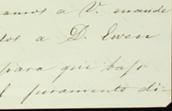 amos a V. mande
tos a D. Ewen
para que bajo
l juramento di-